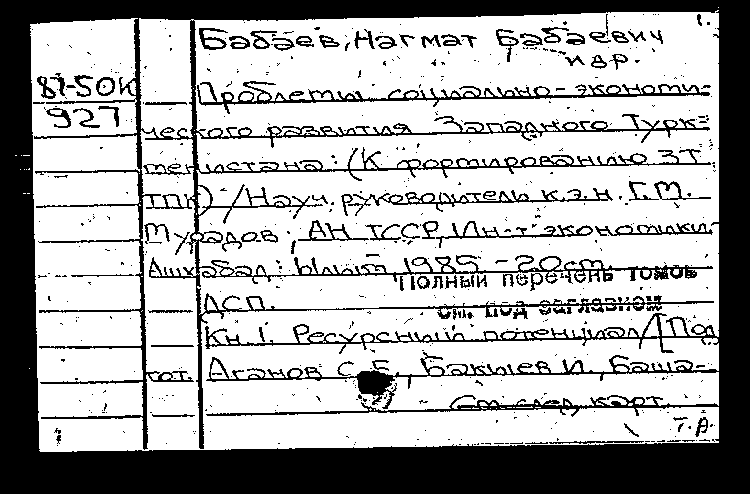 1.
Бабаев, Нагмат Бабаевич
и др.
87-50К
927
Проблемы социально-экономи-
ческого развития Западного Турк-
менистана: (К формированию ЗТ
ТПК) / Науч. руководитель к.э.н. Г.М.
Мурадов; АН ТССР, Ин-т экономики.
Ашхабад: Ылым, 1985. - 20см.
Полный перечень томов
см. под заглавием
ДСП.
Кн. 1. Ресурсный потенциал / [Под
гот. Аганов С.Е., Бакыев И., Баша-
См. след. карт.
Т.А.